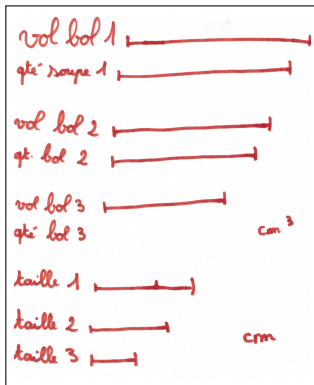 vol bol 1
qté soupe 1
vol bol 2
qt. bol 2
vol bol 3
qté bol 3 cm³
taille 1
taille 2 cm
taille 3